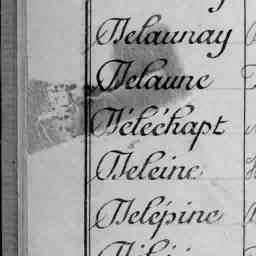 Delaunay
Delaune
Déléchapt
Deleine
Delépine